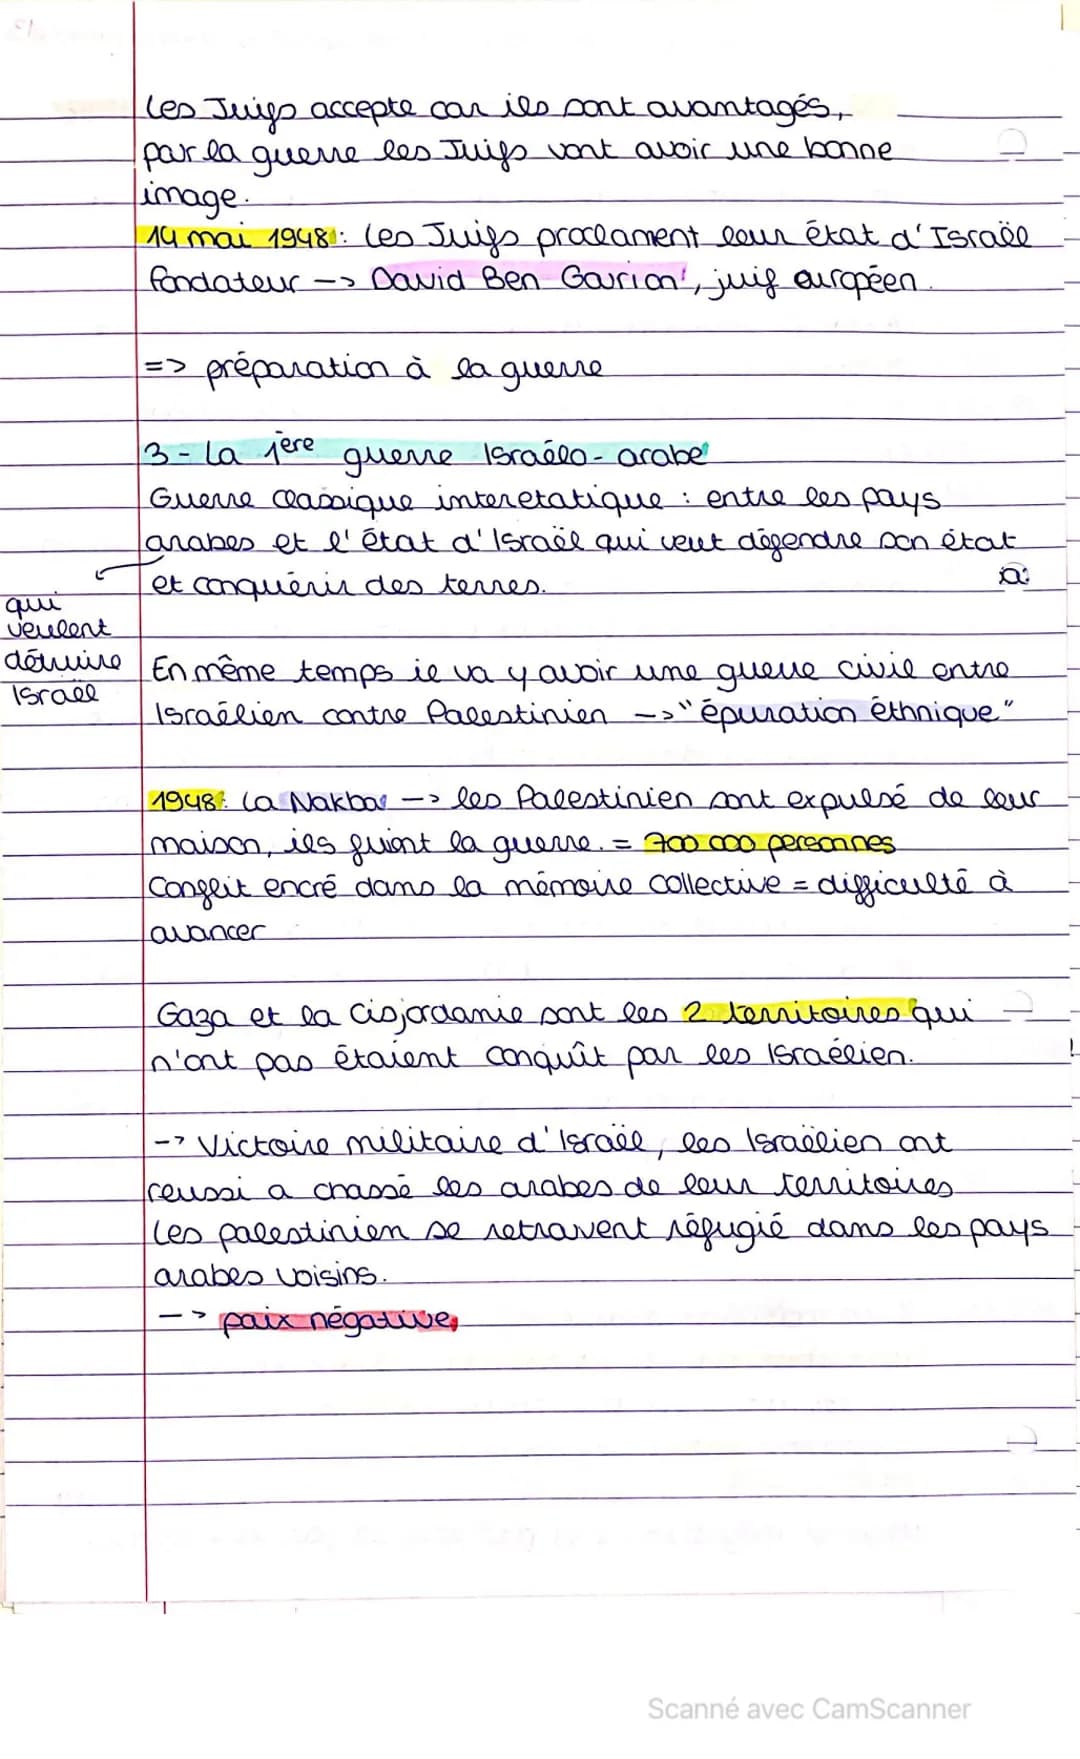 Les Juifs accepte car ils sont avantagés,
par la guerre les Juifs vont avoir une bonne
image.
14 mai 1948 : Les Juifs proclament leur état d'Israël
fondateur --> David Ben Gurion, juif européen.
=> préparation à la guerre
3 - La 1ère guerre Israélo - arabe
Guerre classique interetatique : entre les pays
arabes et l'état d'Israël qui veut défendre son état
et conquérir des terres.
qui
veulent
détruire
Israël
En même temps il va y avoir une guerre civil entre
Israélien contre Palestinien --> "épuration éthnique"
1948 : La Nakba --> les Palestinien sont expulsé de leur
maison, ils fuient la guerre. = 700 000 personnes
Conflit encré dans la mémoire collective = difficulté à
avancer
Gaza et la Cisjordanie sont les 2 territoires qui
n'ont pas étaient conquît par les Israélien.
-> Victoire militaire d'Israël, les Israëlien ont
reussi a chassé les arabes de leur territoires
Les palestinien se retrouvent réfugié dans les pays
arabes voisins.
--> paix négative
Scanné avec CamScanner